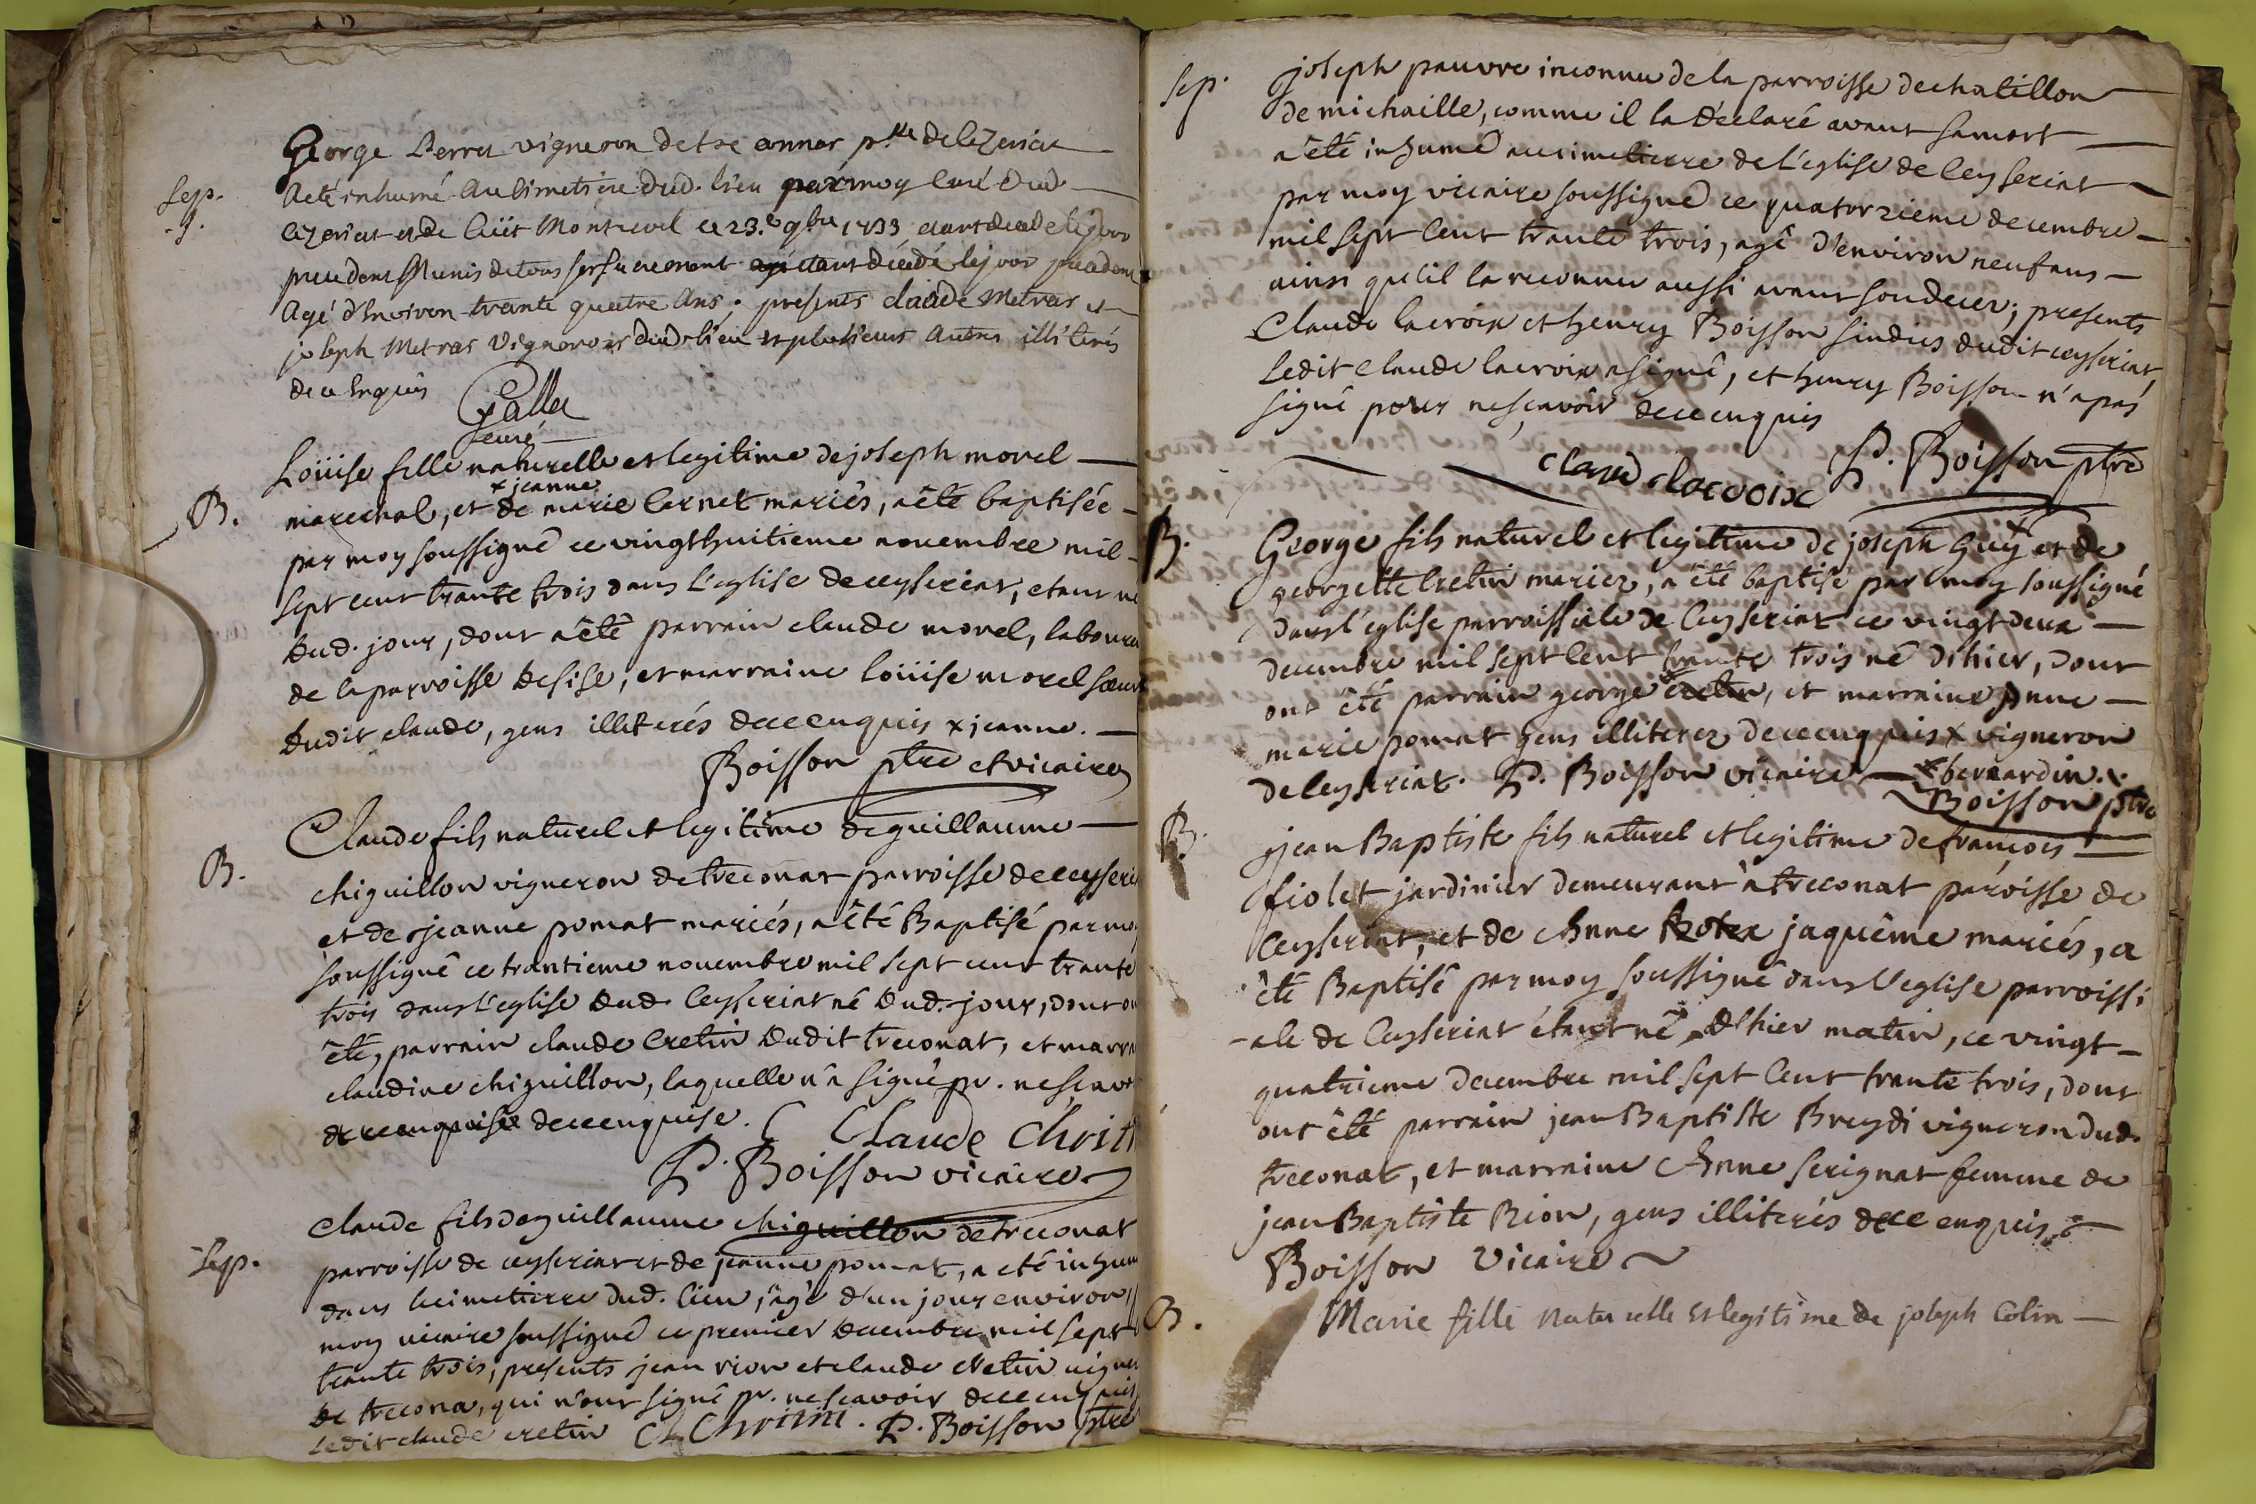 Sep.
George Perret vigneron de treconnas p.sse de Cezeriat
Acté inhumé Au Cimetiere dud. lieu par moy Curé dud
Cezeriat et de Cuët Montrevel ce 23.e 9bre 1733 etant decedé le jour
precedent Munis de tous ses sacrement
Agé d'Environ trante quatre Ans. presents claude Metras et
joseph Metras Vignerons dud. lieu et plusieurs Autres illiterés
de ce Enquis
curé
B.
Loüise fille naturelle et legitime de joseph morel
x jeanne
marechal, et de marie Carnet mariés, a êté baptisée
par moy soussigné ce vingthuitieme novembre mil
sept cent trante trois dans l'eglise de ceyseriat, etant né
dud. jour, dont a êté parrain claude morel, laboure
de la parroisse de sise, et marraine loüise morel soeur
dudit claude, gens illiterés de ce enquis x jeanne.
Boisson ptre et vicaire
B.
Claude fils naturel et legitime de guillaume
chiguillon vigneron de treconat parroisse de ceyseri
et de jeanne pomat mariés, a êté Baptisé par moy
soussigné ce trantieme novembre mil sept cent trante
trois dans l'eglise dud. Ceyseriat né dud. jour, dont on
êté, parrain claude Cretin dudit treconat, et marra
claudine chiguillon, laquelle n'a signé pr. ne scavo
de ce enquise de ce enquise. C Claude Christi
P. Boisson vicaire
Sep.
Claude fils de guillaume chiguillon de treconat
parroisse de ceyseriat et de jeanne pomat, a eté inhum
dans le cimetierre dud. lieu, âgé d'un jour environ
moy vicaire soussigné ce premier decembre mil sept
trante trois, presents jean rion et claude cretin vigner
de trecona, qui n'ont signé pr. ne scavoir de ce enquis
ledit claude cretin P. Boisson ptre
Sep.
joseph pauvre inconnu de la parroisse de chatillon
de michaille, comme il la déclaré avant sa mort
a êté inhumé au cimetierre de l'eglise de Ceyseriat
par moy vicaire soussigné ce quatorzieme decembre
mil sept cent trante trois, agé d'environ neuf ans
ainsi qu'il la reconnu aussi avant son decer; presents
Claude lacroix et henry Boisson sindics dudit ceyseriat,
ledit claude lacroix a signé, et henry Boisson n'a pas
signé pour ne sçavoir de ce enquis
claud lacroix P. Boisson ptre
B.
George fils naturel et legitime de joseph Guy et de
georgette Cretin mariez, a êté baptisé par moy soussigné
dans l'eglise parroissiale de Ceyseriat ce vingt deux
decembre mil sept cent trante trois né d'hier, dont
ont êté parrain george cretin, et marraine anne
marie pomat gens illiterez de ce enquis x vigneron
de Ceyseriat. P. Boisson vicaire x bernardin.
Boisson ptre
B.
jean Baptiste fils naturel et legitime de françois
fiolet jardinier demeurant à treconat paroisse de
Ceyseriat, et de Anne jaquême mariés, a
êté Baptisé par moy soussigné dans l'eglise parroissi
-ale de Ceyseriat étant né d'hier matin, ce vingt
quatrieme decembre mil sept cent trante trois, dont
ont êté parrain jean Baptiste Breydi vigneron dud.
treconat, et marraine Anne serignat femme de
jean Baptiste Rion, gens illiterés de ce enquis
Boisson vicaire
B.
Marie fille naturelle et legitime de joseph Colin